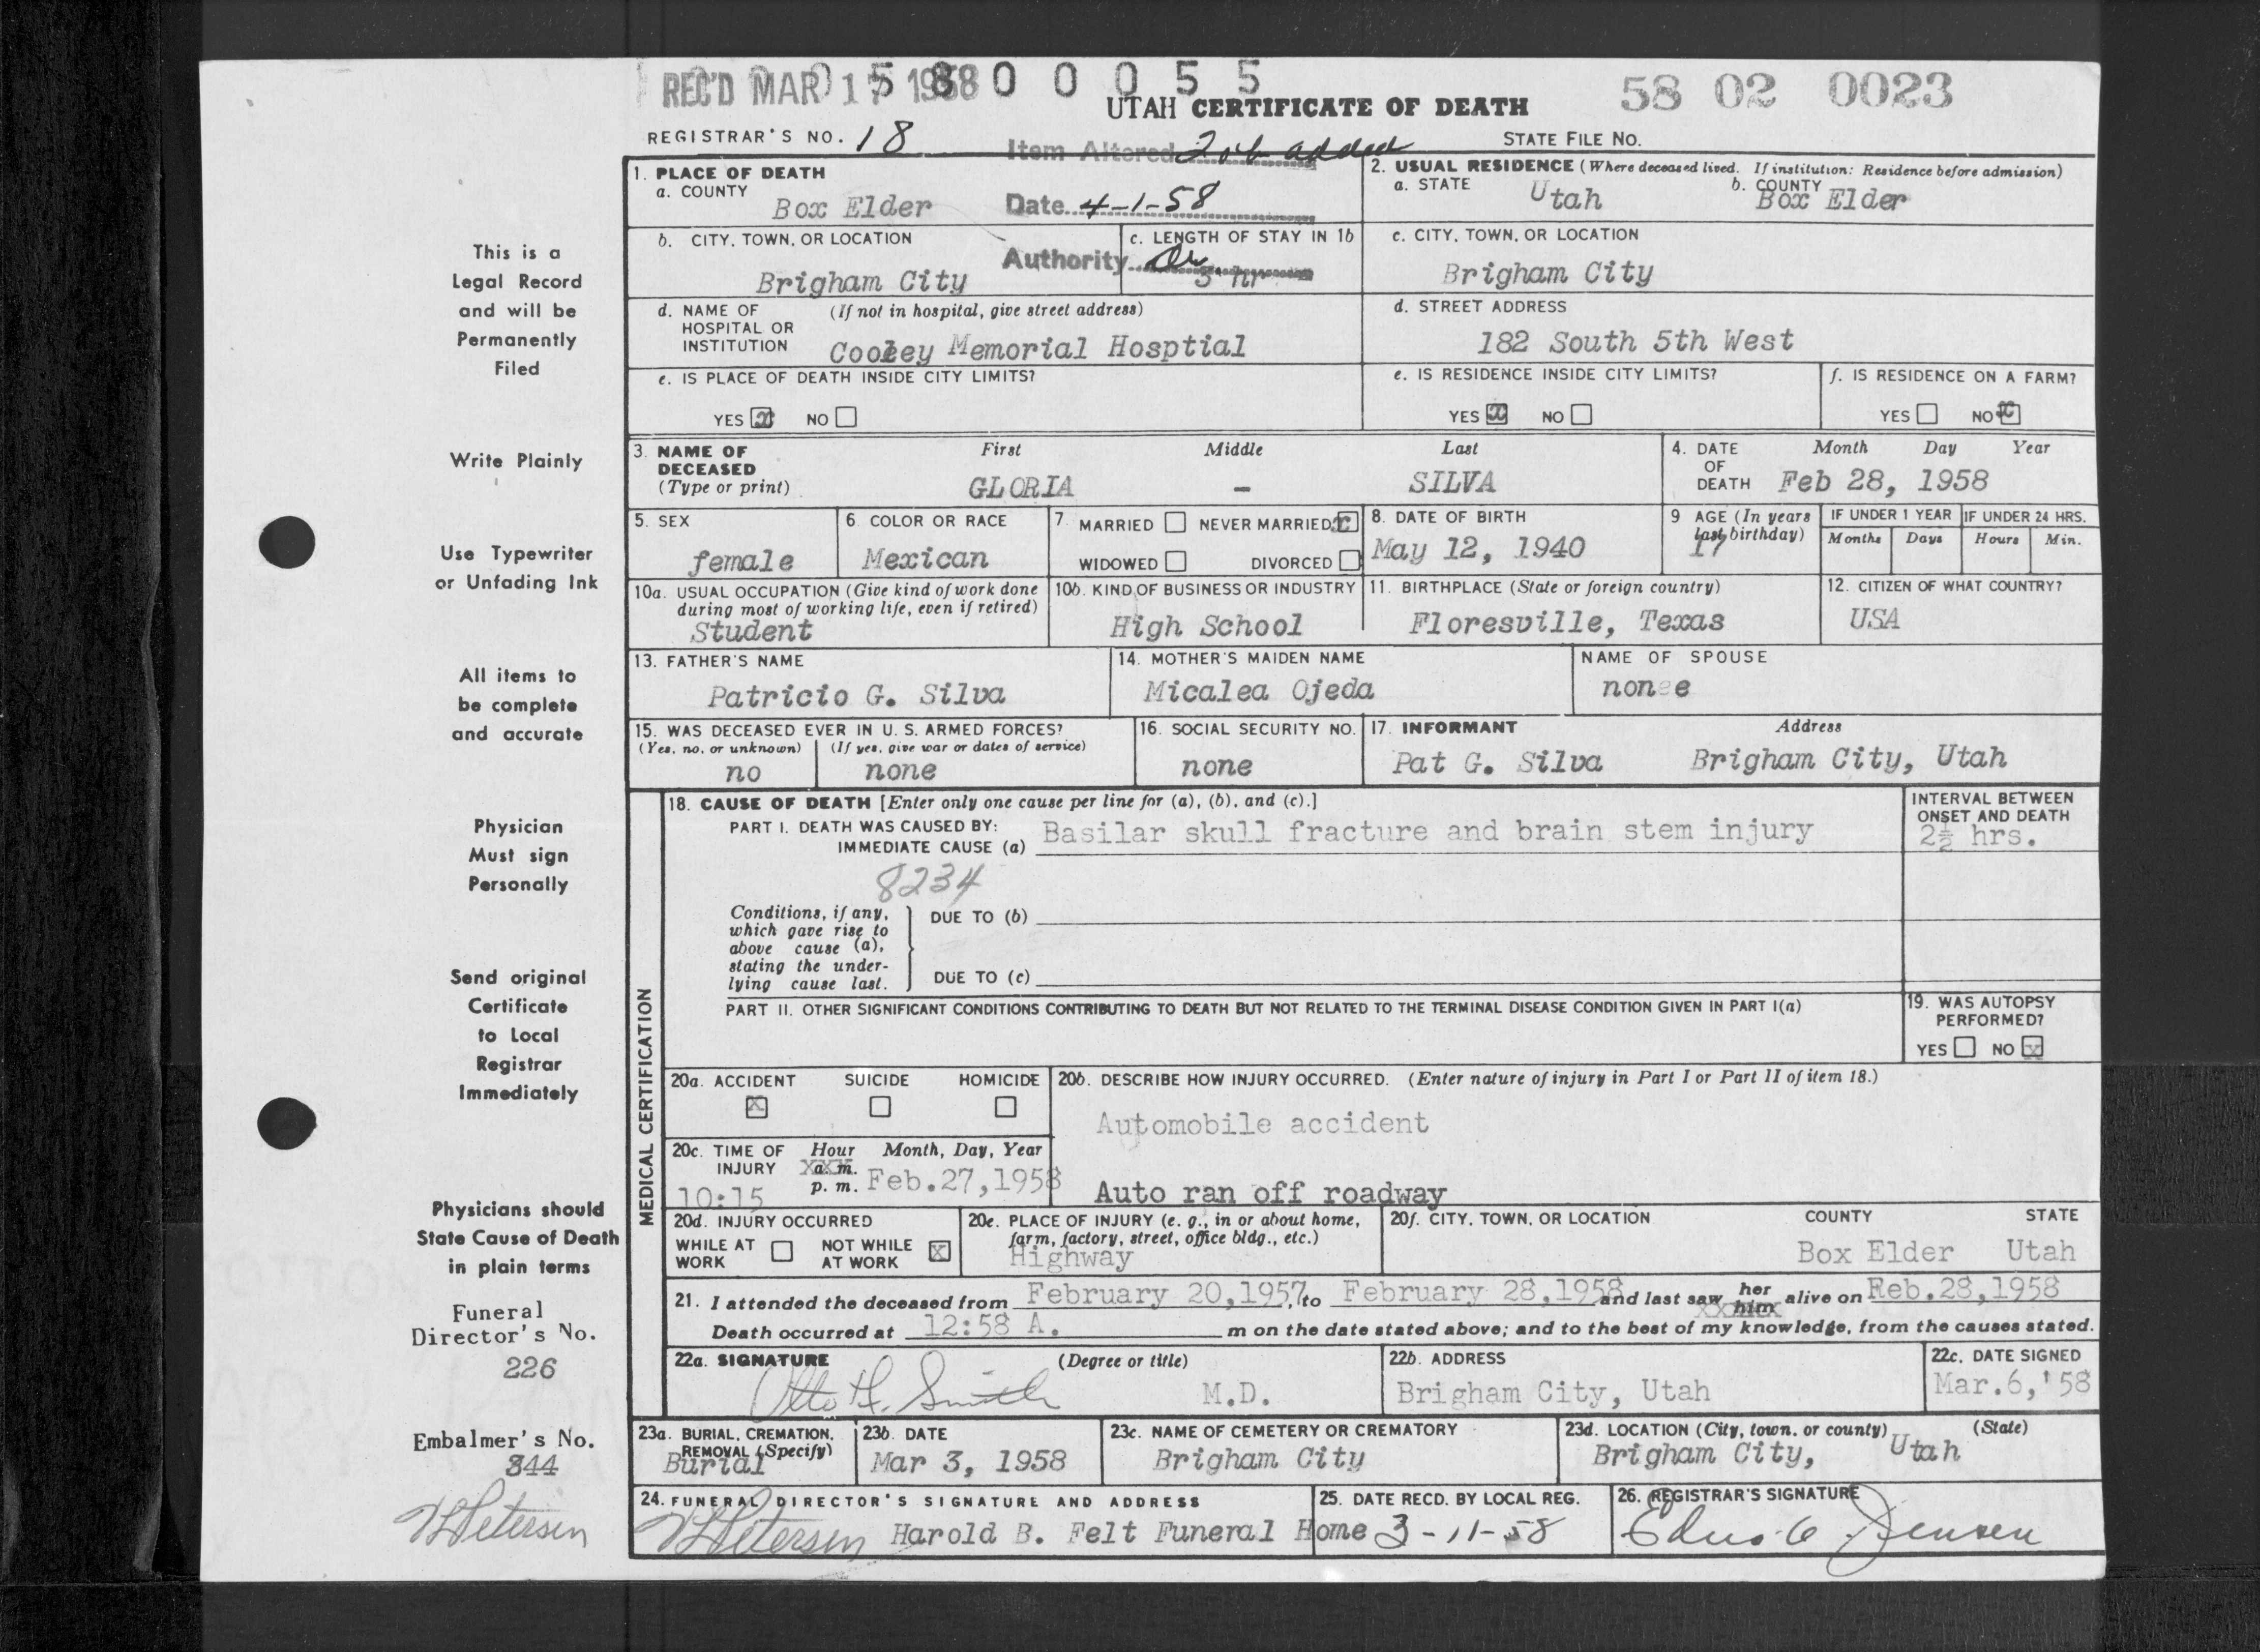 REC'D MAR 17 1958
5 8 0 0 0 5 5
58 02 0023
UTAH CERTIFICATE OF DEATH
REGISTRAR'S NO. 18
Item Altered 20b added
STATE FILE NO.
1. PLACE OF DEATH
a. COUNTY
Box Elder
Date 4-1-58
2. USUAL RESIDENCE (Where deceased lived. If institution: Residence before admission)
a. STATE Utah b. COUNTY Box Elder
b. CITY, TOWN, OR LOCATION
Brigham City
Authority Dr
c. LENGTH OF STAY IN 1b
hr
c. CITY, TOWN, OR LOCATION
Brigham City
d. NAME OF HOSPITAL OR INSTITUTION (If not in hospital, give street address)
Cooley Memorial Hosptial
d. STREET ADDRESS
182 South 5th West
e. IS PLACE OF DEATH INSIDE CITY LIMITS?
YES x NO
e. IS RESIDENCE INSIDE CITY LIMITS?
YES x NO
f. IS RESIDENCE ON A FARM?
YES NO x
3. NAME OF DECEASED (Type or print)
First Middle Last
GLORIA - SILVA
4. DATE OF DEATH Month Day Year
Feb 28, 1958
5. SEX
female
6. COLOR OR RACE
Mexican
7. MARRIED NEVER MARRIED x
WIDOWED DIVORCED
8. DATE OF BIRTH
May 12, 1940
9 AGE (In years last birthday)
17
IF UNDER 1 YEAR IF UNDER 24 HRS.
Months Days Hours Min.
10a. USUAL OCCUPATION (Give kind of work done during most of working life, even if retired)
Student
10b. KIND OF BUSINESS OR INDUSTRY
High School
11. BIRTHPLACE (State or foreign country)
Floresville, Texas
12. CITIZEN OF WHAT COUNTRY?
USA
13. FATHER'S NAME
Patricio G. Silva
14. MOTHER'S MAIDEN NAME
Micalea Ojeda
NAME OF SPOUSE
nonee
15. WAS DECEASED EVER IN U. S. ARMED FORCES?
(Yes, no, or unknown) (If yes, give war or dates of service)
no none
16. SOCIAL SECURITY NO.
none
17. INFORMANT Address
Pat G. Silva Brigham City, Utah
MEDICAL CERTIFICATION
18. CAUSE OF DEATH [Enter only one cause per line for (a), (b), and (c).]
PART I. DEATH WAS CAUSED BY:
IMMEDIATE CAUSE (a) Basilar skull fracture and brain stem injury
INTERVAL BETWEEN ONSET AND DEATH
2½ hrs.
8234
Conditions, if any, which gave rise to above cause (a), stating the underlying cause last.
DUE TO (b)
DUE TO (c)
PART II. OTHER SIGNIFICANT CONDITIONS CONTRIBUTING TO DEATH BUT NOT RELATED TO THE TERMINAL DISEASE CONDITION GIVEN IN PART I(a)
19. WAS AUTOPSY PERFORMED?
YES NO x
20a. ACCIDENT SUICIDE HOMICIDE
X
20b. DESCRIBE HOW INJURY OCCURRED. (Enter nature of injury in Part I or Part II of item 18.)
Automobile accident
Auto ran off roadway
20c. TIME OF INJURY Hour Month, Day, Year
a. m.
p. m.
10:15 Feb.27,1958
20d. INJURY OCCURRED
WHILE AT WORK NOT WHILE AT WORK X
20e. PLACE OF INJURY (e. g., in or about home, farm, factory, street, office bldg., etc.)
Highway
20f. CITY, TOWN, OR LOCATION COUNTY STATE
Box Elder Utah
21. I attended the deceased from February 20,1957, to February 28,1958 and last saw her him alive on Feb.28,1958
Death occurred at 12:58 A. m on the date stated above; and to the best of my knowledge, from the causes stated.
22a. SIGNATURE (Degree or title)
Otto H. Smith M.D.
22b. ADDRESS
Brigham City, Utah
22c. DATE SIGNED
Mar.6,'58
23a. BURIAL, CREMATION, REMOVAL (Specify)
Burial
23b. DATE
Mar 3, 1958
23c. NAME OF CEMETERY OR CREMATORY
Brigham City
23d. LOCATION (City, town, or county) (State)
Brigham City, Utah
24. FUNERAL DIRECTOR'S SIGNATURE AND ADDRESS
Petersen Harold B. Felt Funeral Home
25. DATE RECD. BY LOCAL REG.
3-11-58
26. REGISTRAR'S SIGNATURE
Jensen
This is a
Legal Record
and will be
Permanently
Filed
Write Plainly
Use Typewriter
or Unfading Ink
All items to
be complete
and accurate
Physician
Must sign
Personally
Send original
Certificate
to Local
Registrar
Immediately
Physicians should
State Cause of Death
in plain terms
Funeral
Director's No.
226
Embalmer's No.
344
Petersen